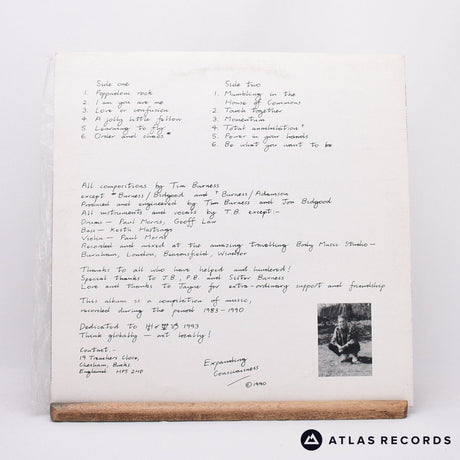 Side one
1. Poppadom rock
2. I am you are me
3. Love or confusion
4. A jolly little fellow
5. Learning to fly
6. Order and chaos *
Side two
1. Mumbling in the
House of Commons
2. Touch together
3. Momentum
4. Total annihilation +
5. Power in your hands
6. Be what you want to be
All compositions by Tim Burness
except * Burness/Bidgood and + Burness/Adamson
Produced and engineered by Tim Burness and Jon Bidgood
All instruments and vocals by T.B. except:-
Drums - Paul Morris, Geoff Law
Bass - Keith Hastings
Violin - Paul Morris
Recorded and mixed at the amazing Travelling Body Music Studio -
Burnham, London, Beaconsfield, Windsor
Thanks to all who have helped and hindered!
Special thanks to J.B., P.B. and Sister Burness
Love and thanks to Jayne for extra-ordinary support and friendship
This album is a compilation of music,
recorded during the period 1983-1990
Dedicated to 1993
Think globally - act locally!
Contact:-
19 Treachers Close,
Chesham, Bucks
England. HP5 2HD
Expanding
Consciousness
© 1990
ATLAS RECORDS